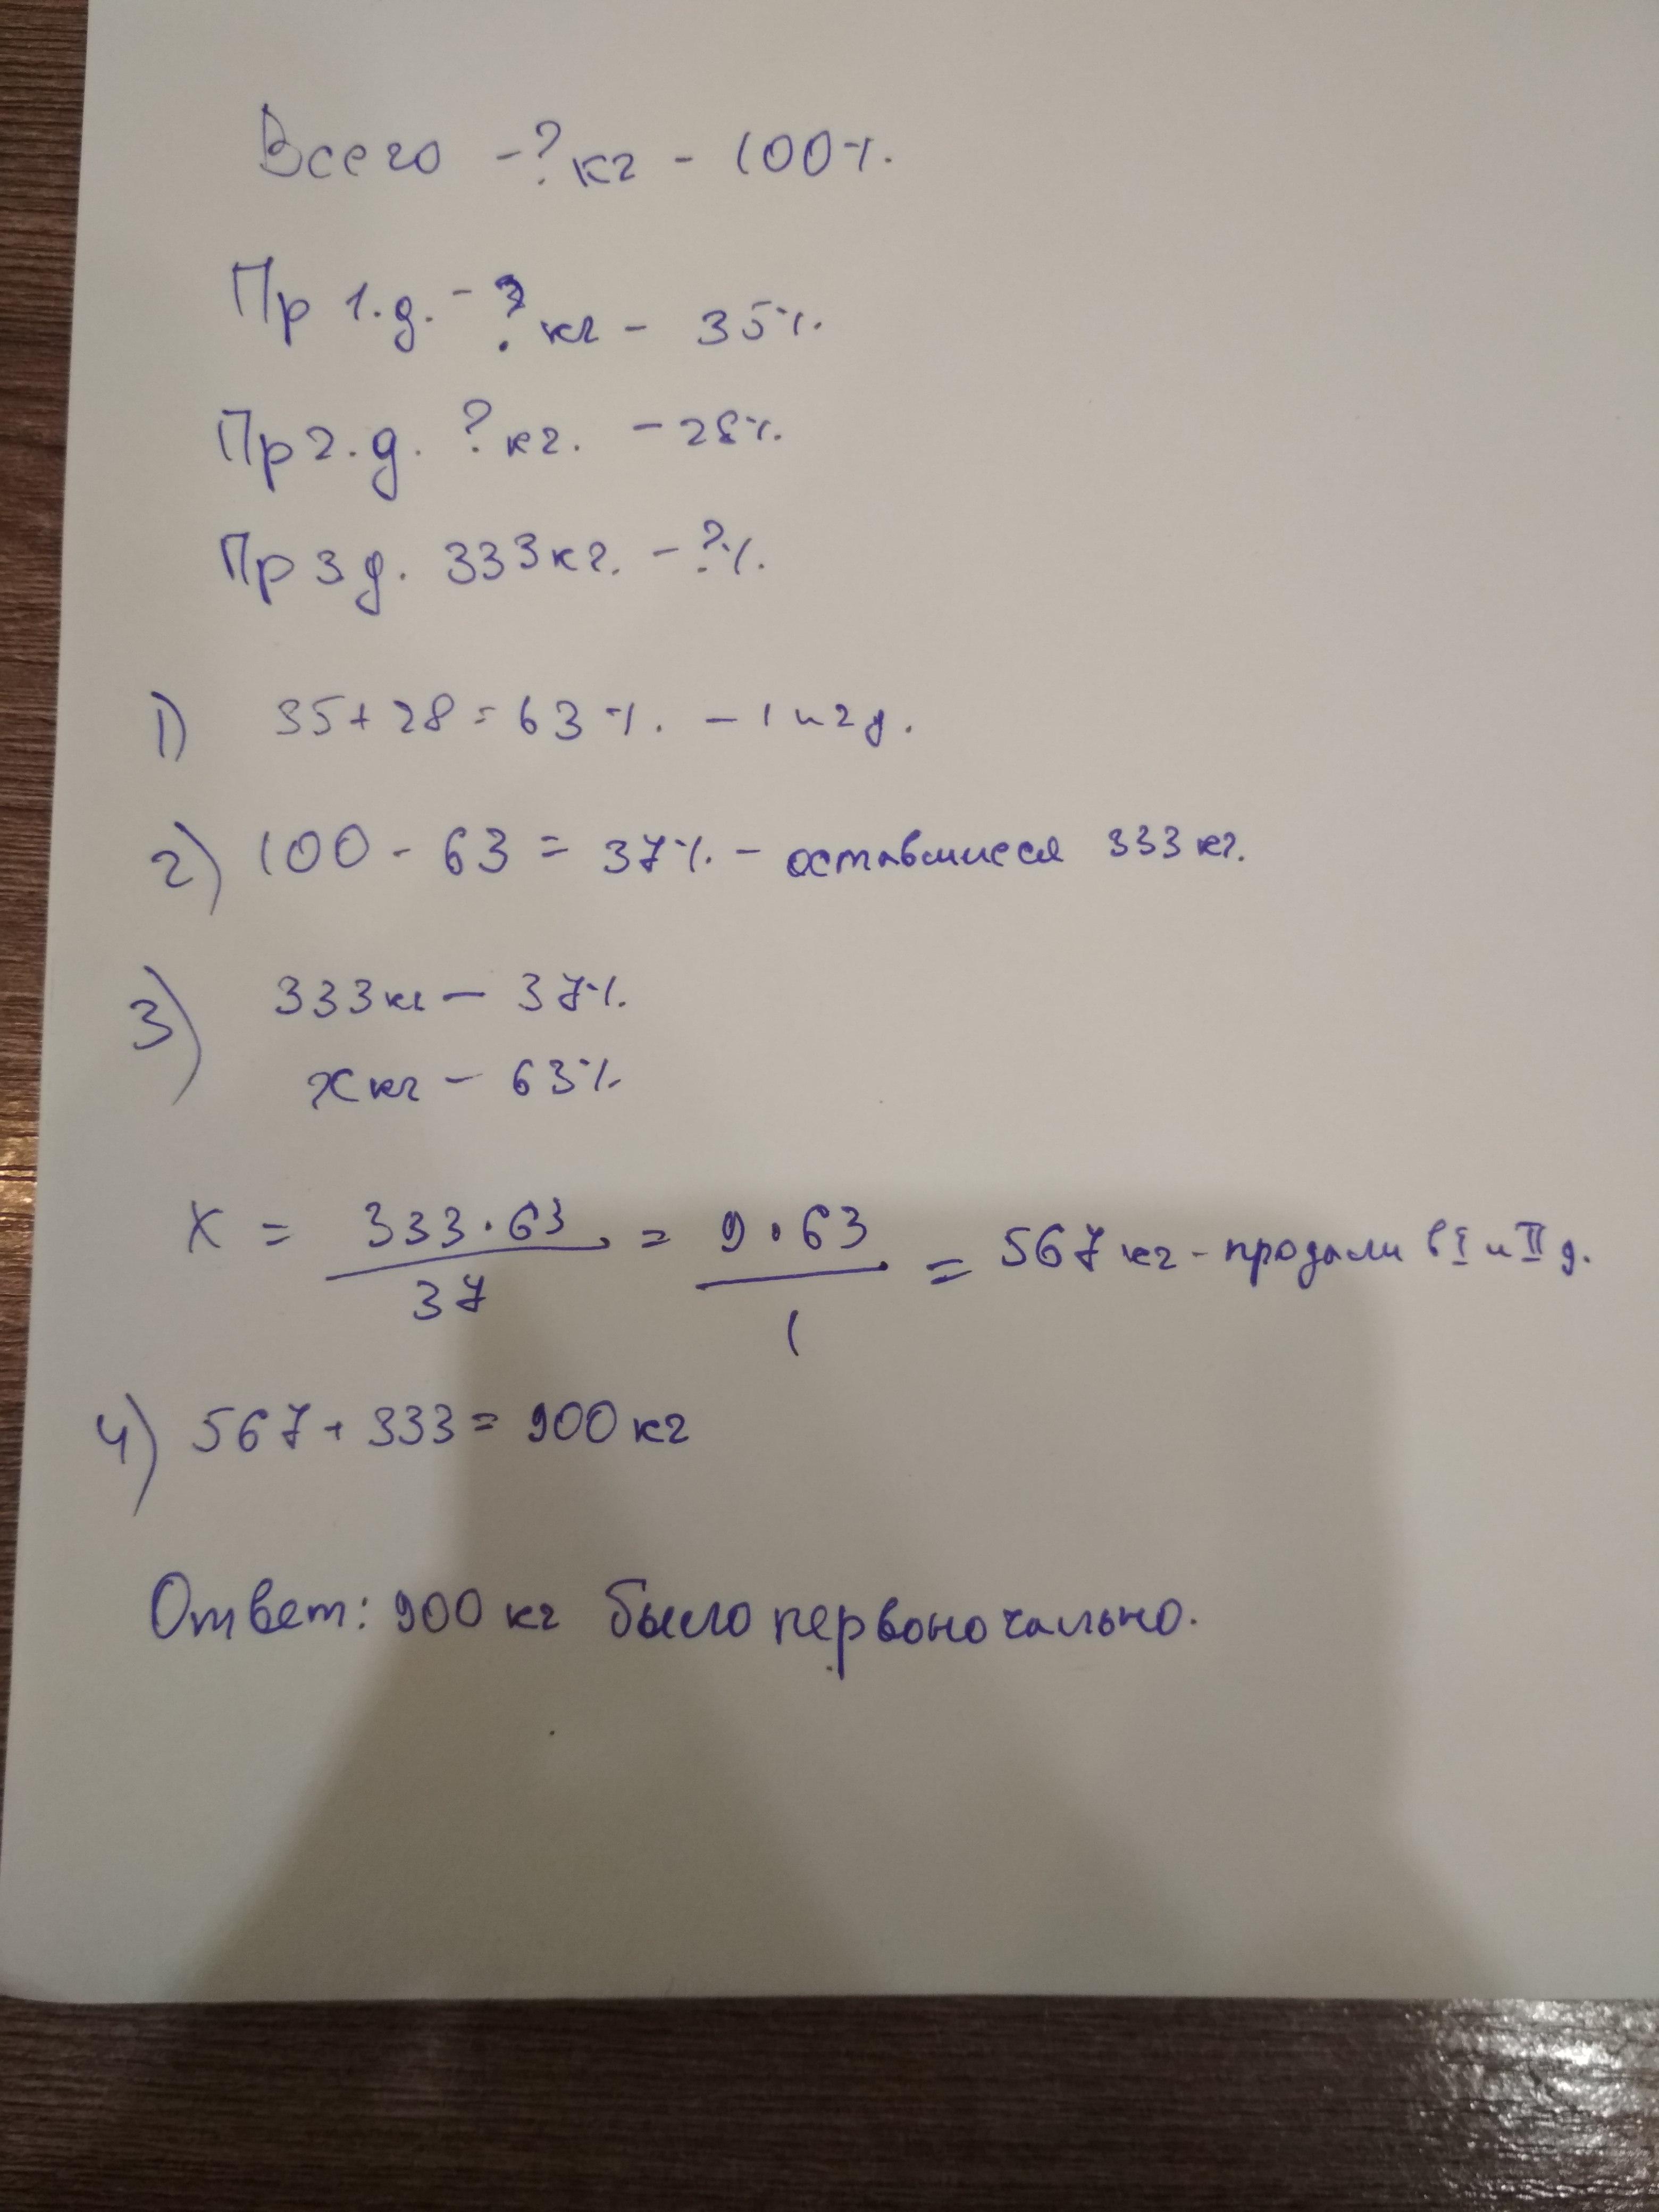 Всего - ? кг - 100%.
Пр 1.д. - ? кг - 35%.
Пр 2.д. ? кг. - 28%.
Пр 3 д. 333 кг. - ?%.
1) 35 + 28 = 63%. - 1 и 2 д.
2) 100 - 63 = 37% - оставшиеся 333 кг.
3) 333 кг - 37%.
х кг - 63%
x = 333·63/37 = 9·63/1 = 567 кг - продали в I и II д.
4) 567 + 333 = 900 кг
Ответ: 900 кг было первоночально.